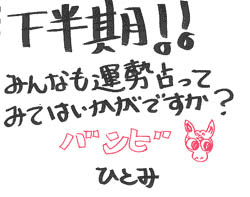 下半期!!
みんなも運勢占って
みてはいかがですか?
バンビ
ひとみ